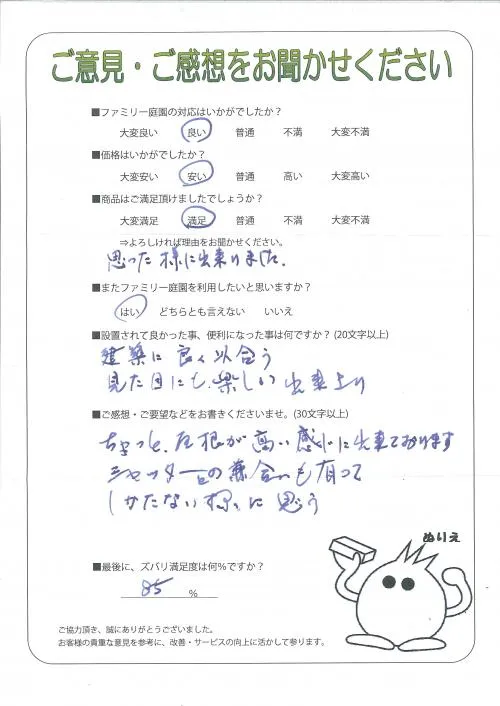 ご意見・ご感想をお聞かせください
■ファミリー庭園の対応はいかがでしたか？
大変良い 良い 普通 不満 大変不満
■価格はいかがでしたか？
大変安い 安い 普通 高い 大変高い
■商品はご満足頂けましたでしょうか？
大変満足 満足 普通 不満 大変不満
⇒よろしければ理由をお聞かせください。
思った様に出来ました。
■またファミリー庭園を利用したいと思いますか？
はい どちらとも言えない いいえ
■設置されて良かった事、便利になった事は何ですか？(20文字以上)
建築に良く似合う
見た目にも、楽しい出来上り
■ご感想・ご要望などをお書きくださいませ。(30文字以上)
ちょっと、屋根が高い感じに出来ております
シャッターとの兼合いも有って
しかたない様に思う
ぬりえ
■最後に、ズバリ満足度は何％ですか？
85 ％
ご協力頂き、誠にありがとうございました。
お客様の貴重な意見を参考に、改善・サービスの向上に活かして参ります。